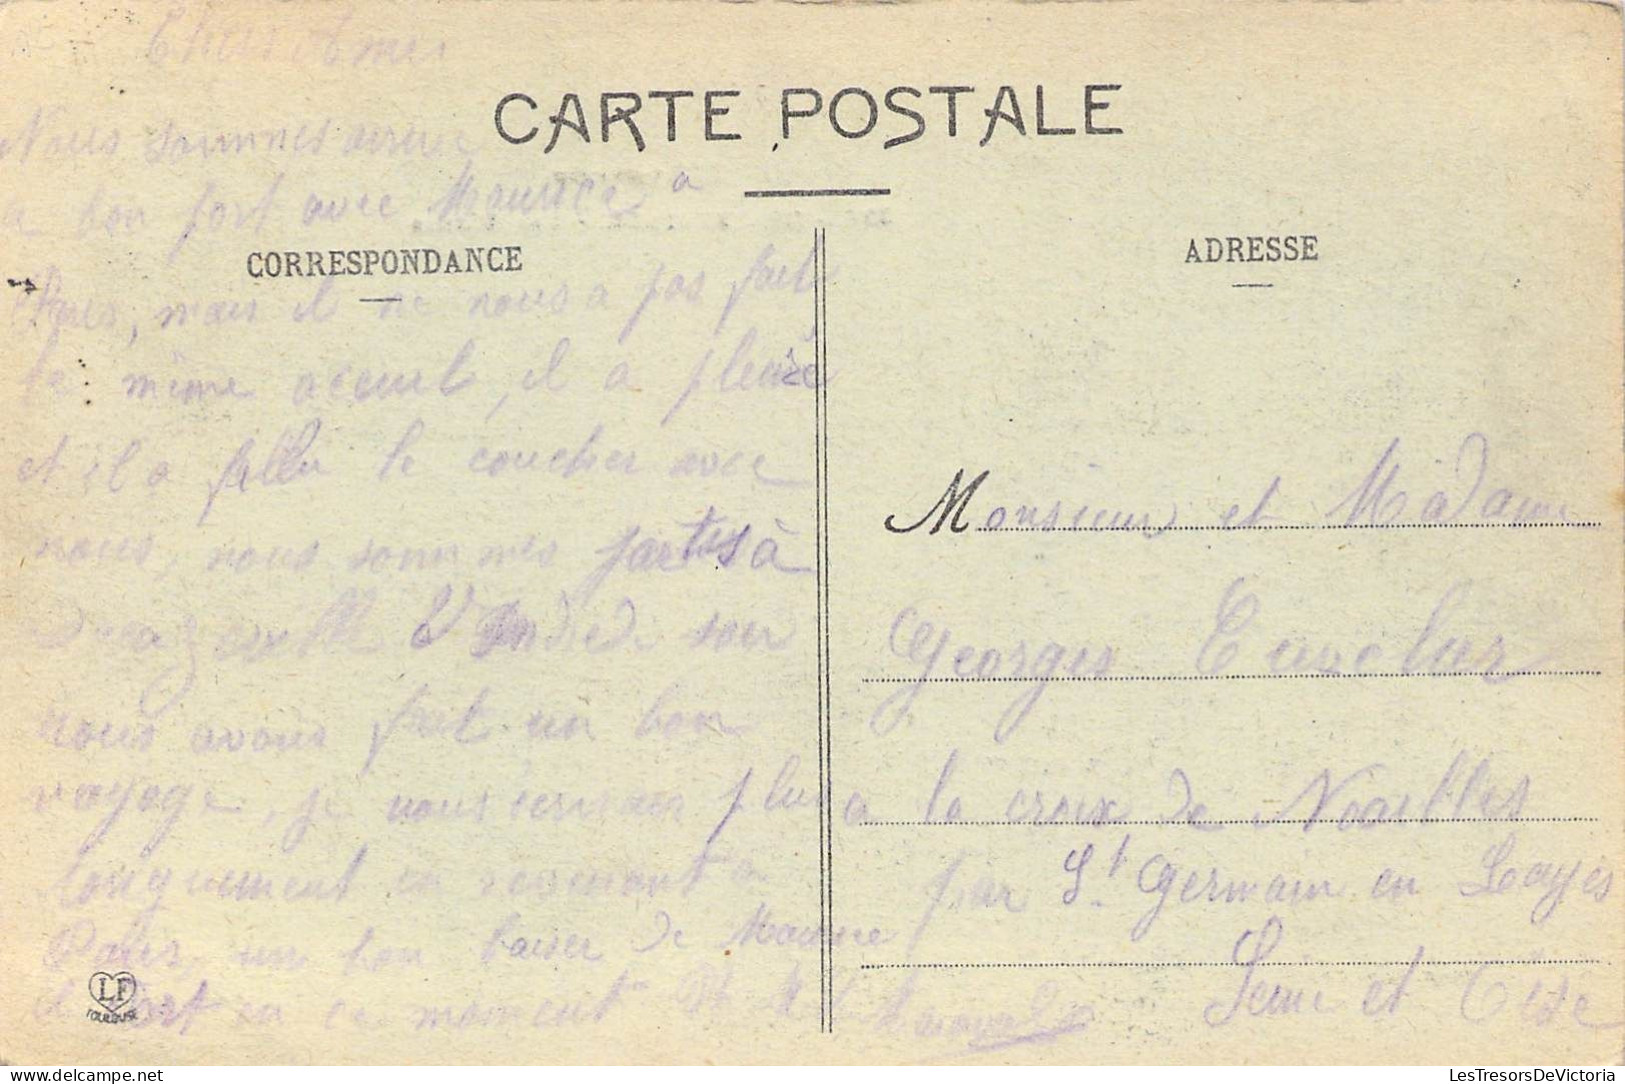 Chers Amis
CARTE POSTALE
Nous sommes arrivé
a bon port avec Maurice a
CORRESPONDANCE
ADRESSE
Paris, mais il ne nous a pas fait
le même aceuil, il a pleuré
et il a fallu le coucher avec
nous, nous sommes partis à
soir
nous avons fait un bon
voyage, je vous ecrirais plus
longuement en revenant a
Paris, un bon baiser de Maurice
il dort en ce moment
Monsieur et Madame
Georges
a la croix de Noailles
par St Germain en Layes
Seine et Oise
LF
TOULOUSE
LesTresorsDeVictoria
LesTresorsDeVictoria.com